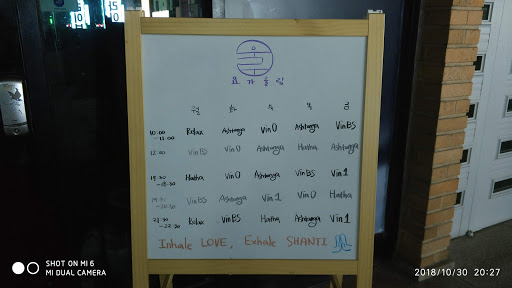 요가울림
월 화 수 목 금
10:00 -11:00 Relax Ashtanga Vin O Ashtanga Vin BS
12:00 Vin BS Vin O Ashtanga Hatha Ashtanga
Hatha Vin O Ashtanga Vin BS Vin 1
Vin BS Ashtanga Vin 1 Vin O Hatha
Relax Vin BS Hatha Ashtanga Vin 1
Inhale LOVE, Exhale SHANTI
SHOT ON MI 6
MI DUAL CAMERA
2018/10/30 20:27